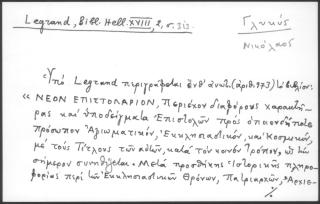 Legrand, Bibl. Hell. XVIII, 2, σ. 313.
Γλυκύς
Νικόλαος
Ὑπὸ Legrand περιγράφεται ὑπ' ἀριθ. (ἀριθ. 973) τὸ βιβλίον:
« ΝΕΟΝ ΕΠΙΣΤΟΛΑΡΙΟΝ, Περιέχον διαφόρους χαρακτῆ-
ρας καὶ ὑποδείγματα Ἐπιστολῶν πρὸς ὁποιονδήποτε
πρόσωπον Ἀξιωματικόν, Ἐκκλησιαστικόν, καὶ Κοσμικόν,
μὲ τοὺς Τίτλους τῶν αὐτῶν, κατὰ τὸν κοινὸν Τρόπον, ὡς τὴν
σήμερον συνηθίζεται. Μετὰ προσθήκης Ἱστορικῆς πληρο-
φορίας περὶ τῶν Ἐκκλησιαστικῶν Θρόνων, Πατριαρχῶν, Ἀρχιε-